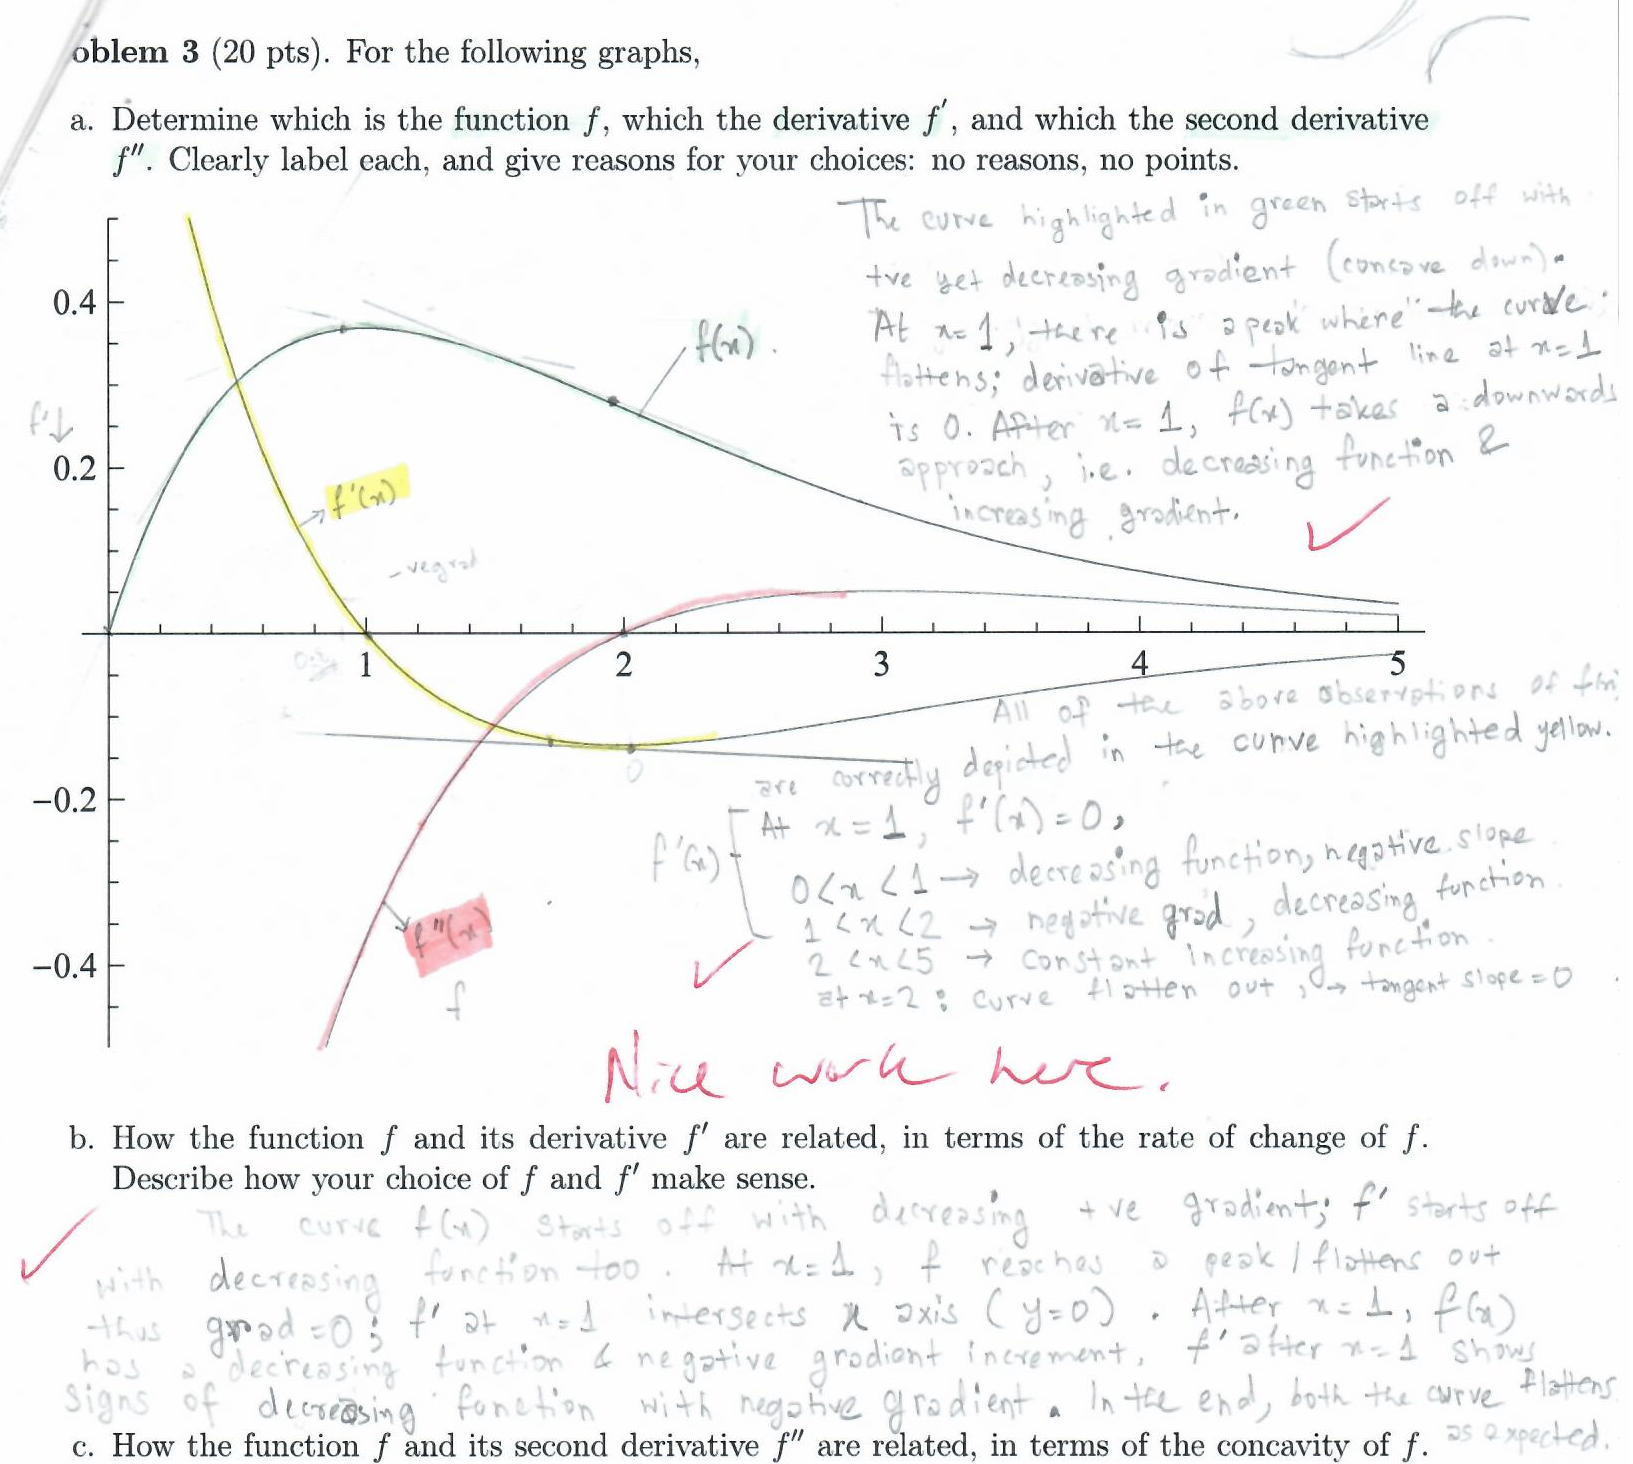 oblem 3 (20 pts). For the following graphs,
a. Determine which is the function f, which the derivative f′, and which the second derivative
f″. Clearly label each, and give reasons for your choices: no reasons, no points.
The curve highlighted in green starts off with
+ve yet decreasing gradient (concave down).
At x=1, there is a peak where the curve
flattens; derivative of tangent line at x=1
is 0. After x=1, f(x) takes a downwards
approach, i.e. decreasing function &
increasing gradient.
0.4
f(x)
f'↓
0.2
f'(x)
-ve grad
1
2
3
4
5
All of the above observations of f(x)
are correctly depicted in the curve highlighted yellow.
0
−0.2
f'(x)
At x=1, f'(x)=0,
0<x<1→ decreasing function, negative slope
1<x<2 → negative grad, decreasing function
2<x<5 → constant increasing function.
at x=2: curve flatten out, ↳ tangent slope=0
f"(x)
−0.4
f
Nice work here.
b. How the function f and its derivative f′ are related, in terms of the rate of change of f.
Describe how your choice of f and f′ make sense.
The curve f(x) starts off with decreasing +ve gradient; f' starts off
with decreasing function too. At x=1, f reaches a peak / flattens out
thus grad=0; f' at x=1 intersects x axis (y=0). After x=1, f(x)
has a decreasing function & negative gradient increment, f' after x=1 shows
signs of decreasing function with negative gradient. In the end, both the curve flattens
as expected.
c. How the function f and its second derivative f″ are related, in terms of the concavity of f.